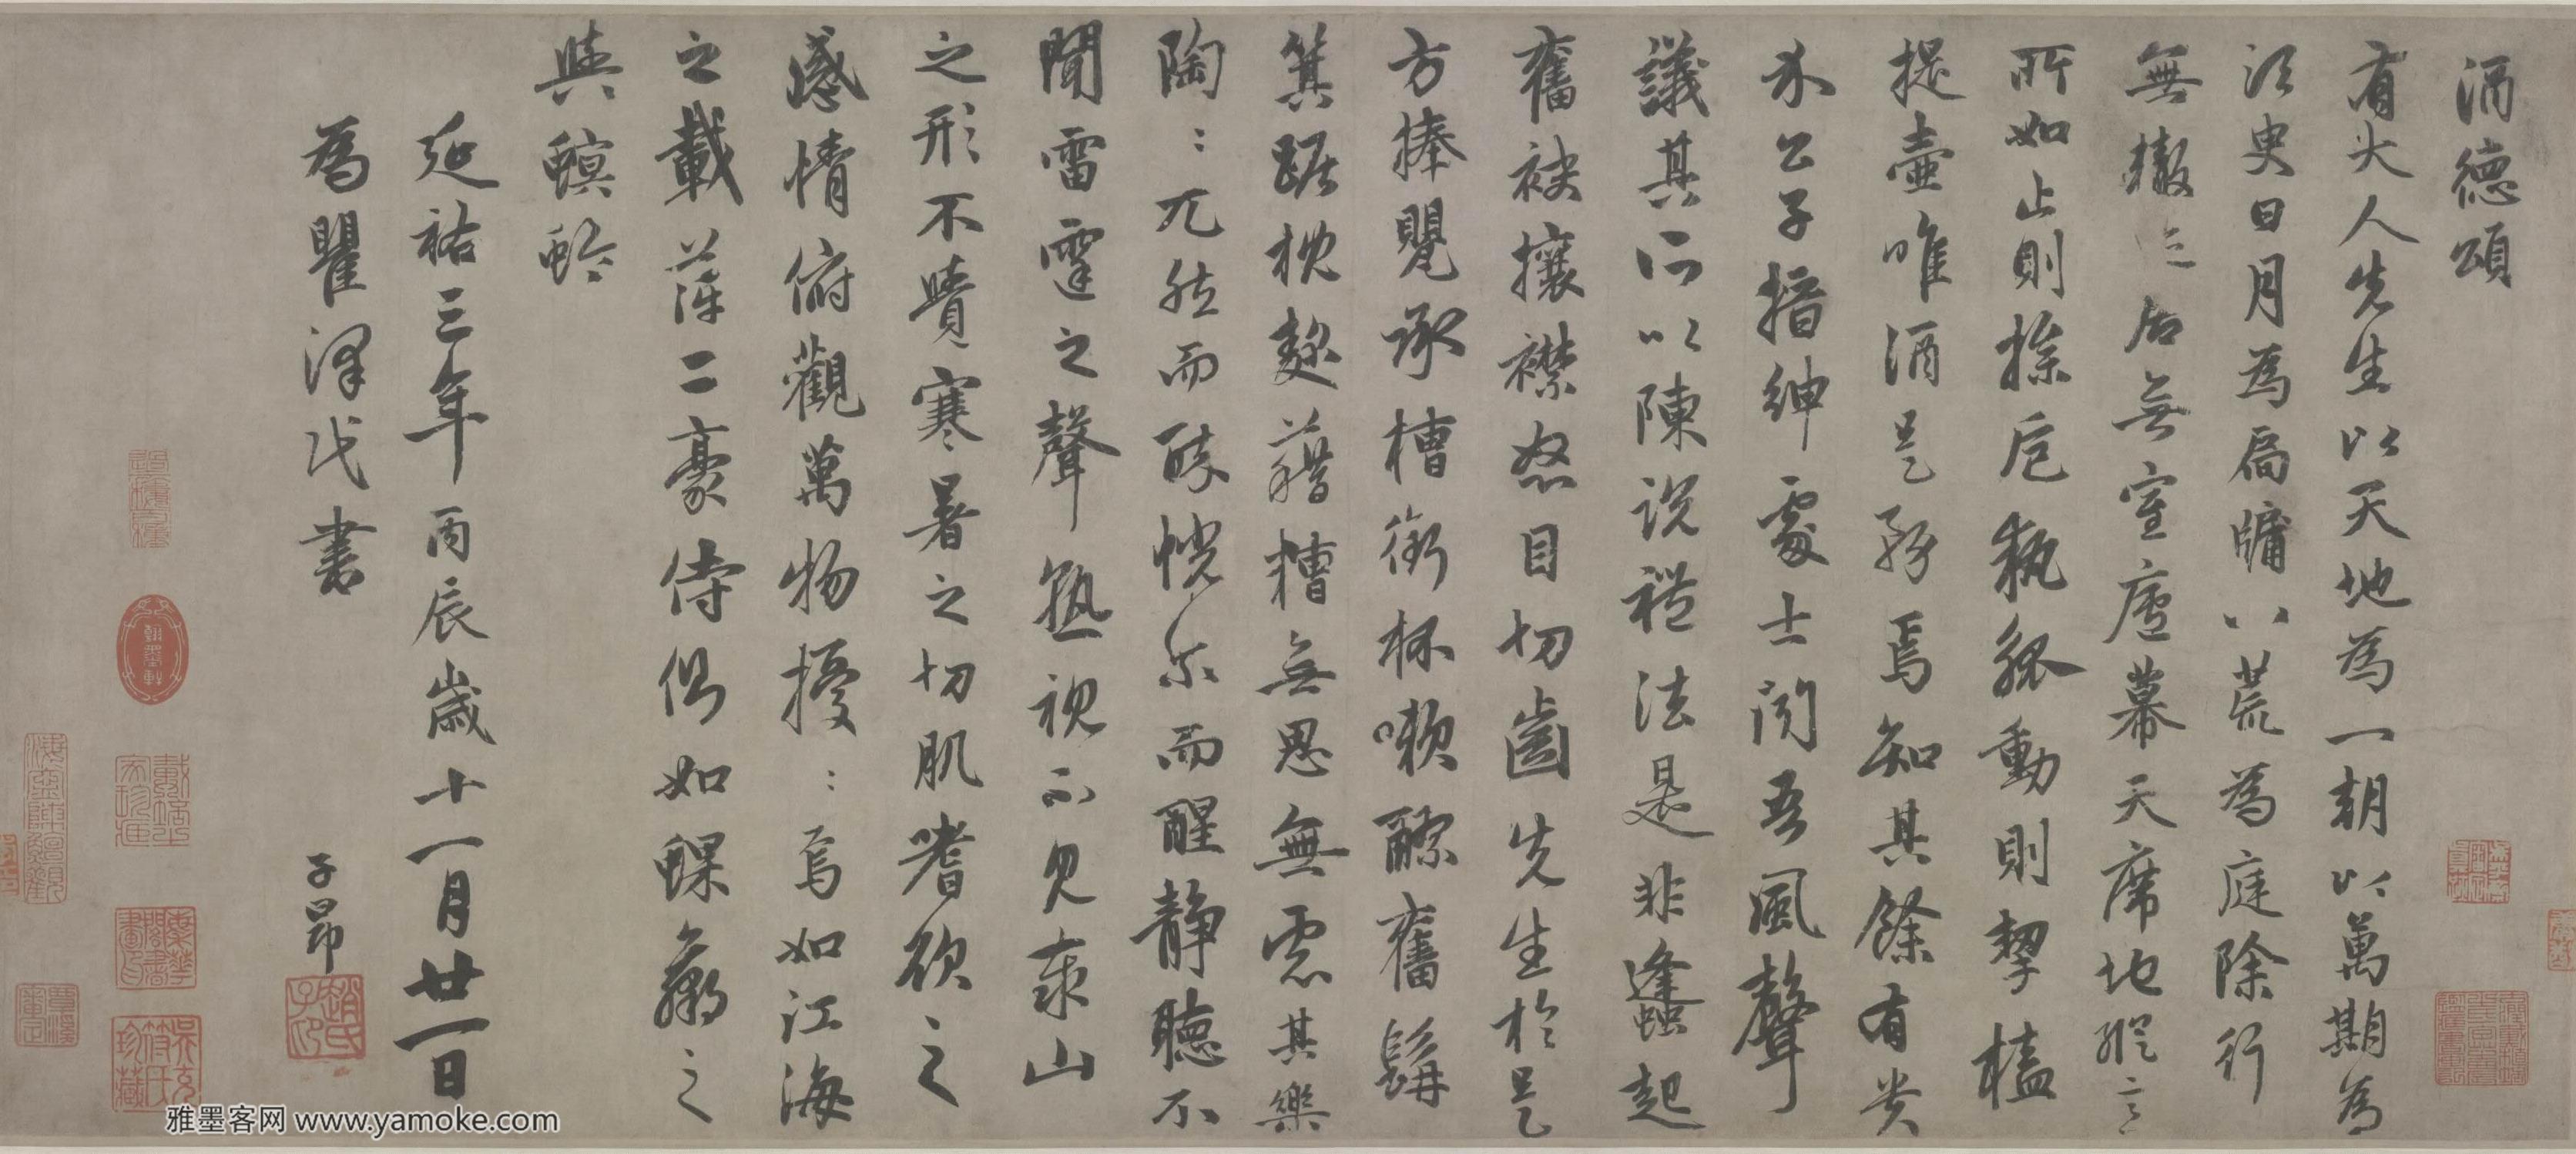 酒德頌
有大人先生以天地為一朝以萬期為
須史日月為扃牖八荒為庭除行
無轍迹居無室廬幕天席地縱意
所如止則操卮執觚動則挈榼
提壺唯酒是務焉知其餘有貴
介公子搢紳處士聞吾風聲
議其所以陳說禮法是非蜂起
奮袂攘襟怒目切齒先生於是
方捧甖承槽銜杯漱醪奮髯
箕踞枕麴藉糟無思無慮其樂
陶〻兀然而醉恍尔而醒靜聽不
聞雷霆之聲孰視不見泰山
之形不覺寒暑之切肌嗜欲之
感情俯觀萬物擾〻焉如江海
之載萍二豪侍側如蜾蠃之
與螟蛉
延祐三年丙辰歲十一月廿一日
為瞿澤民書
子昂
趙氏子印
雅墨客网 www.yamoke.com